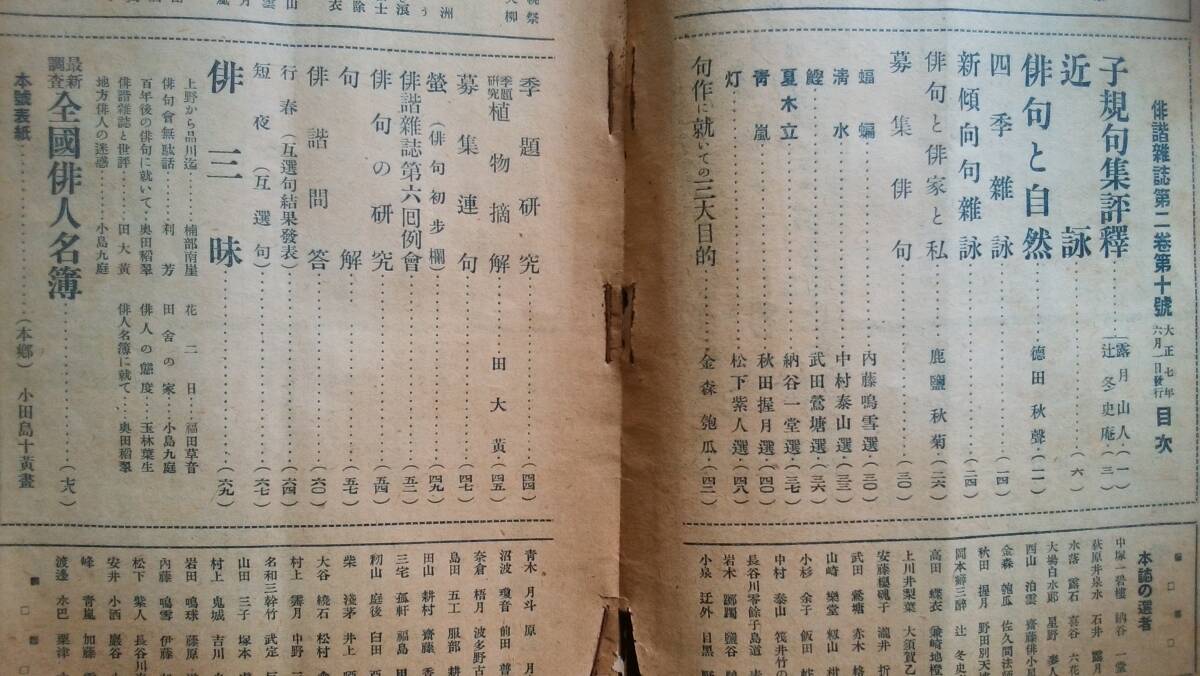 俳諧雜誌第二卷第十號 大正七年六月一日發行 目次
子規句集評釋 露月山人 辻冬史庵 (一)
近詠 (六)
俳句と自然 德田秋聲 (一一)
四季雜詠 (一四)
新傾向句雜詠 (二四)
俳句と俳家と私 鹿鹽秋菊 (二六)
募集俳句 (三〇)
蝙蝠 內藤鳴雪選 (三〇)
淸水 中村泰山選 (三三)
鰹 武田鶯塘選 (三六)
夏木立 納谷一堂選 (三七)
靑嵐 秋田握月選 (四〇)
灯 松下紫人選 (四八)
句作に就いての三大目的 金森匏瓜 (四二)
季題硏究 (四四)
季題硏究 植物摘解 田大黃 (四五)
募集連句 (四七)
螢 (俳句初步欄) (四九)
俳諧雜誌第六回例會 (五二)
俳句の硏究 (五四)
句解 (五七)
俳諧問答 (六〇)
行春 (互選句結果發表) (六四)
短夜 (互選句) (六七)
俳三昧 (六九)
上野から品川迄 楠部南崖
花二日 福田草音
俳句會無駄話 利芳
田舍の家 小島九庭
百年後の俳句に就いて 奧田稻翠
俳人の態度 玉林葉生
俳諧雜誌と世評 田大黃
俳人名簿に就て 奧田稻翠
地方俳人の迷惑 小島九庭
最新調査 全國俳人名簿 (七八)
本號表紙 (本鄕) 小田島十黃畫
本誌の選者
中塚一碧樓 納谷一堂
荻原井泉水 石井露月
水落露石 喜谷六花
大場白水郎 星野麥人
西山泊雲 齋藤俳小星
金森匏瓜 佐久間法師
秋田握月 野田別天樓
岡本癖三醉 辻冬史
高田蝶衣 兼崎地橙
上川井梨葉 大須賀乙
安藤橡面子 瀧井折
武田鶯塘 赤木格
山崎樂堂 籾山柑
小杉余子 飯田蛇
中村泰山 筏井竹の
長谷川零餘子 島道
岩木躑躅 鹽谷
小泉迂外 目黑野
靑木月斗 原月
沼波瓊音 前田普
奈倉梧月 波多野古
島田五工 服部耕
田山耕村 齋藤香
三宅孤軒 福島
籾山庭後 臼田亞
柴淺茅 井上
大谷繞石 松村
村上霽月 中野三
名和三幹竹 武定
山田三子 塚本
村上鬼城 吉川
岩田鳴球 藤原
內藤鳴雪 伊藤
松下紫人 長谷川
安井小洒 巖谷
峰靑嵐 加藤
渡邊水巴 栗津